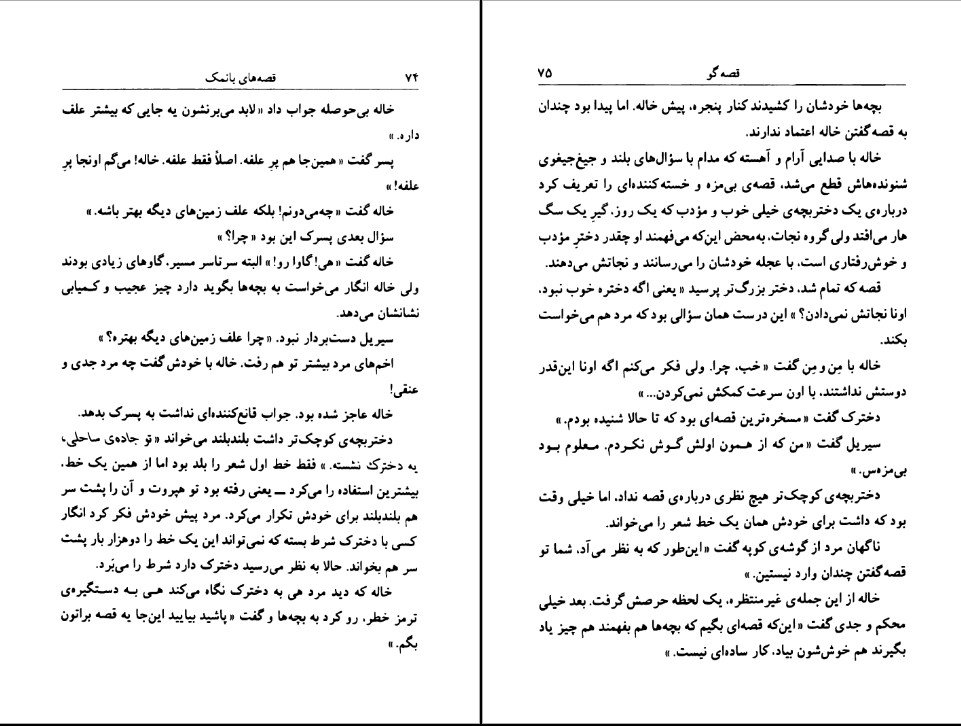 ۷۴ قصه‌های بانمک
خاله بی‌حوصله جواب داد « لابد می‌برنشون یه جایی که بیشتر علف
داره. »
پسر گفت « همین‌جا هم پرِ علفه. اصلاً فقط علفه. خاله! می‌گم اونجا پرِ
علفه! »
خاله گفت « چه‌می‌دونم! بلکه علف زمین‌های دیگه بهتر باشه. »
سؤال بعدی پسرک این بود « چرا؟ »
خاله گفت « هی! گاوا رو! » البته سرتاسر مسیر، گاوهای زیادی بودند
ولی خاله انگار می‌خواست به بچه‌ها بگوید دارد چیز عجیب و کمیابی
نشانشان می‌دهد.
سیریل دست‌بردار نبود. « چرا علف زمین‌های دیگه بهتره؟ »
اخم‌های مرد بیشتر تو هم رفت. خاله با خودش گفت چه مرد جدی و
عنقی!
خاله عاجز شده بود. جواب قانع‌کننده‌ای نداشت به پسرک بدهد.
دختربچه‌ی کوچک‌تر داشت بلندبلند می‌خواند « تو جاده‌ی ساحلی،
یه دخترک نشسته. » فقط خط اول شعر را بلد بود اما از همین یک خط،
بیشترین استفاده را می‌کرد ـــ یعنی رفته بود تو هپروت و آن را پشت سر
هم بلندبلند برای خودش تکرار می‌کرد. مرد پیش خودش فکر کرد انگار
کسی با دخترک شرط بسته که نمی‌تواند این یک خط را دوهزار بار پشت
سر هم بخواند. حالا به نظر می‌رسید دخترک دارد شرط را می‌بَرد.
خاله که دید مرد هی به دخترک نگاه می‌کند هی به دستگیره‌ی
ترمز خطر، رو کرد به بچه‌ها و گفت « پاشید بیایید این‌جا یه قصه براتون
بگم. »
قصه‌گو ۷۵
بچه‌ها خودشان را کشیدند کنار پنجره، پیش خاله. اما پیدا بود چندان
به قصه‌گفتن خاله اعتماد ندارند.
خاله با صدایی آرام و آهسته که مدام با سؤال‌های بلند و جیغ‌جیغوی
شنونده‌هاش قطع می‌شد، قصه‌ی بی‌مزه و خسته‌کننده‌ای را تعریف کرد
درباره‌ی یک دختربچه‌ی خیلی خوب و مؤدب که یک روز، گیرِ یک سگ
هار می‌افتد ولی گروه نجات، به‌محض این‌که می‌فهمند او چقدر دخترِ مؤدب
و خوش‌رفتاری است، با عجله خودشان را می‌رسانند و نجاتش می‌دهند.
قصه که تمام شد، دختر بزرگ‌تر پرسید « یعنی اگه دختره خوب نبود،
اونا نجاتش نمی‌دادن؟ » این درست همان سؤالی بود که مرد هم می‌خواست
بکند.
خاله با مِن‌و مِن گفت « خب، چرا. ولی فکر می‌کنم اگه اونا این‌قدر
دوستش نداشتند، با اون سرعت کمکش نمی‌کردن... »
دخترک گفت « مسخره‌ترین قصه‌ای بود که تا حالا شنیده بودم. »
سیریل گفت « من که از همون اولش گوش نکردم. معلوم بود
بی‌مزه‌س. »
دختربچه‌ی کوچک‌تر هیچ نظری درباره‌ی قصه نداد، اما خیلی وقت
بود که داشت برای خودش همان یک خط شعر را می‌خواند.
ناگهان مرد از گوشه‌ی کوپه گفت « این‌طور که به نظر می‌آد، شما تو
قصه‌گفتن چندان وارد نیستین. »
خاله از این جمله‌ی غیرمنتظره، یک لحظه حرصش گرفت. بعد خیلی
محکم و جدی گفت « این‌که قصه‌ای بگیم که بچه‌ها هم بفهمند هم چیز یاد
بگیرند هم خوش‌شون بیاد، کار ساده‌ای نیست. »